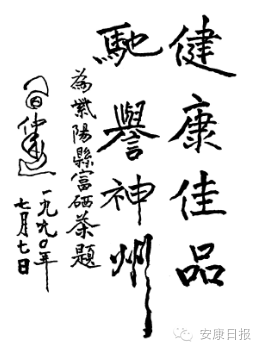 健康佳品
馳譽神州
為紫陽縣富硒茶題
一九九〇年
七月七日
安康日报